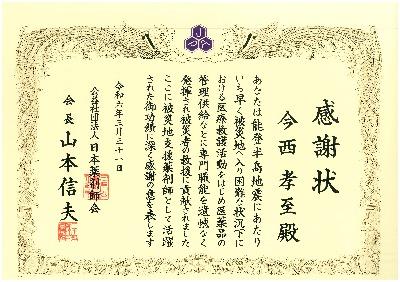 感謝状
今西孝至殿
あなたは能登半島地震にあたり
いち早く被災地へ入り困難な状況下に
おける医療救護活動をはじめ医薬品の
管理供給などに専門職能を遺憾なく
発揮され被災者の救援に貢献されました
ここに被災地支援薬剤師として活躍
された御功績に深く感謝の意を表します
令和六年三月三十一日
公益社団法人日本薬剤師会
会長山本信夫